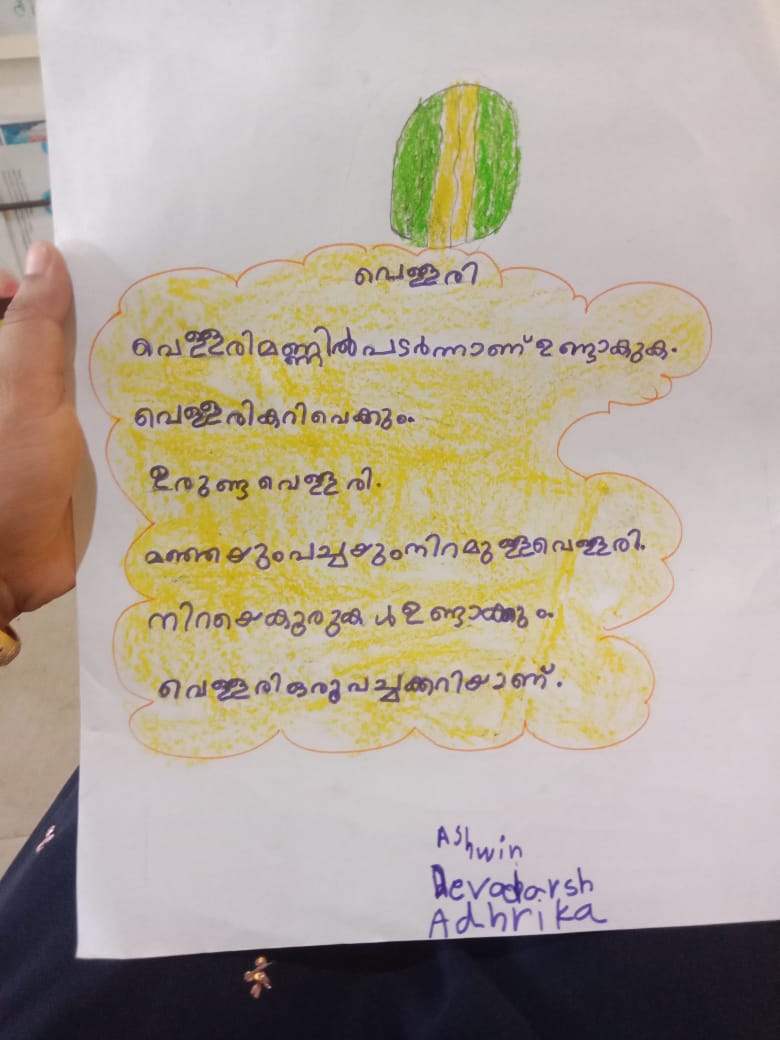 വെള്ളരി
വെള്ളരിമണ്ണിൽപടർന്നാണ് ഉണ്ടാകുക.
വെള്ളരികറിവെക്കും.
ഉരുണ്ട വെള്ളരി.
മഞ്ഞയുംപച്ചയുംനിറമുള്ളവെള്ളരി.
നിറയെകുരുകൾഉണ്ടാക്കും.
വെള്ളരിഒരുപച്ചക്കറിയാണ്.
Ashwin
Devadarsh
Adhrika